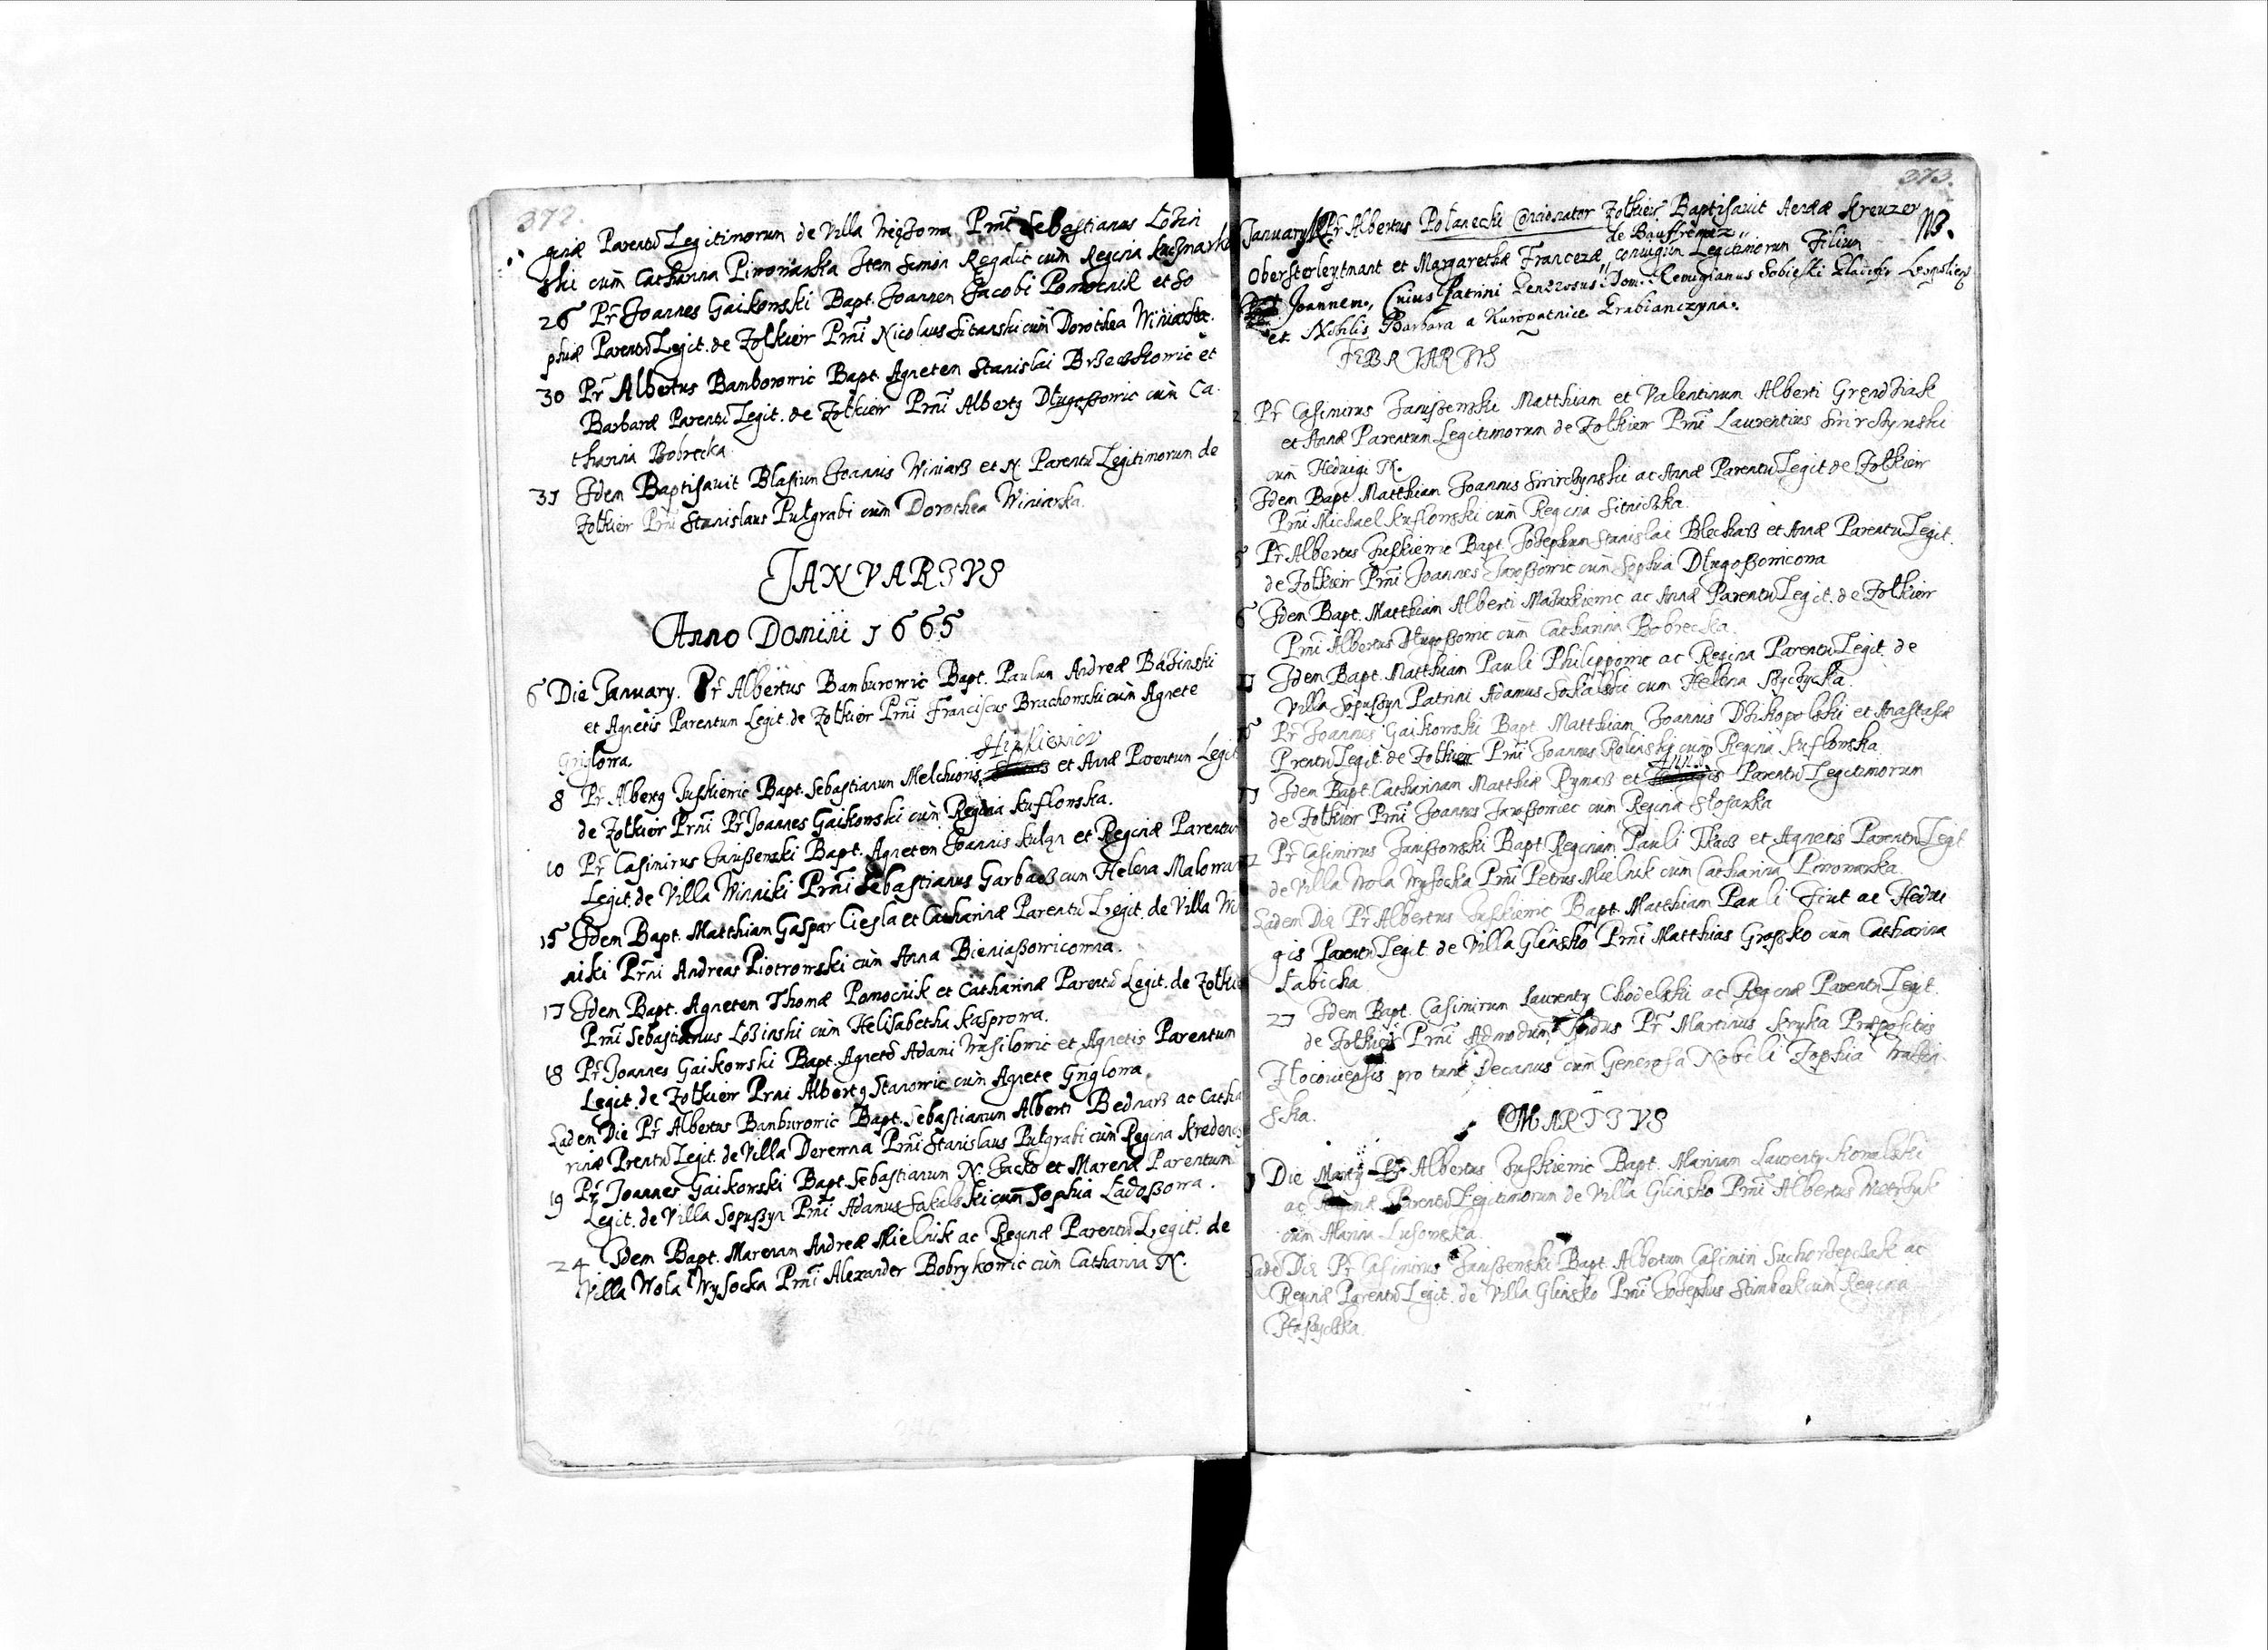 372.
ginæ Parentũ Legitimorum de Villa Prmi Sebastianus Lozin
ski cum Catharina Piwowarska Item Simon Regalic cum Regina
26 Pr Joannes Gaikowski Bapt. Joannem Jacobi Pomocnik et So
phiæ Parentũ Legit. de Zolkiew Prmi Nicolaus Sitarski cum Dorothea Winiarska.
30 Pr Albertus Bamborowic Bapt. Agneten Stanislai et
Barbaræ Parentũ Legit. de Zolkiew Prmi Albertq Długoßowic cum Ca-
tharina Bobrecka
31 Idem Baptisavit Blasium Joannis Winiarß et N. Parentũ Legitimorum de
Zolkiew Prmi Stanislaus Pułgrabi cum Dorothea Winiarska.
JANVARIVS
Anno Domini 1665
6 Die January. Pr Albertus Bamburowic Bapt. Paulum Andreæ Bázinski
et Agnetis Parentum Legit. de Zolkiew Prmi Franciscus Brachowski cum Agnete
Griglowa.
8 Pr Albertq Juskiewic Bapt. Sebastianum Melchioris Hinkiewicz et Annæ Parentum Legit
de Zolkiew Prmi Pr Joannes Gaikowski cum Regina Kuflowska.
10 Pr Casimirus Janißewski Bapt. Agneten Joannis Kulqn et Reginæ Parentum
Legit. de Villa Winniki Prmi Sebastianus Garbarß cum Helena
15 Idem Bapt. Matthiam Gaspar Ciesla et Catharinæ Parentũ Legit. de Villa Wi
niki Prmi Andreas Piotrowski cum Anna Bieniaßowicowna.
17 Idem Bapt. Agneten Thomæ Pomocnik et Catharinæ Parentũ Legit. de Zolkiew
Prmi Sebastianus Loßinski cum Helisabetha Kasprowa.
18 Pr Joannes Gaikowski Bapt. Agnetẽ Adami Wasilowic et Agnetis Parentum
Legit. de Zolkiew Prmi Albertq Stanowic cum Agnete Griglowa.
Eadem Die Pr Albertus Bamburowic Bapt. Sebastianum Alberti Bednarß ac Catha
rinæ Prentũ Legit. de Villa Derewna Prmi Stanislaus Pułgrabi cum Regina
19 Pr Joannes Gaikowski Bapt. Sebastianum N. Jacko et Marenæ Parentum
Legit. de Villa Sopußyn Prmi Adamus Sakalski cum Sophia Ladoßowa.
24 Idem Bapt. Marenam Andreæ Mielnik ac Reginæ Parentũ Legit. de
Villa Wola Wysocka Prmi Alexander Bobrykowic cum Catharina N.
373.
January Pr Albertus Polanecki Concionator Zolkiew. Baptisavit Kreuzer NB.
Obersterleytnant et Margarethæ Francezæ de Bauffremez coniugũm Legitimorum Filium
Joannem, Cuius Patrini Generosus Dom. Remigianus Sobieski
et Nobilis Barbara a Kuropatnice Grabianczyna.
FEBRVARIVS
2 Pr Casimirus Janißewski Matthiam et Valentinum Alberti Grendziak
et Annæ Parentum Legitimorum de Zolkiew Prmi Laurentius Swirczynski
cum Hedvigi N.
Idem Bapt. Matthiam Joannis Swirczynski ac Annæ Parentũ Legit de Zolkiew
Prmi Michael Kuflowski cum Regina Sitniczka.
5 Pr Albertus Juskiewic Bapt. Josephum Stanislai Blecharß et Annæ Parentũ Legit.
de Zolkiew Prmi Joannes Jaroßowic cum Sophia Długoßowicowa
6 Idem Bapt. Matthiam Alberti Mazurkiewic ac Annæ Parentũ Legit. de Zolkiew
Prmi Albertus Długoßowic cum Catharina Bobrecka.
Idem Bapt. Matthiam Pauli Philippowic ac Regina Parentũ Legit. de
Villa Sopußyn Patrini Adamus Sokalski cum Helena
Pr Joannes Gaikowski Bapt Matthiam Joannis Dzikopolski et Anastasiæ
Prentũ Legit. de Zolkiew Prmi Joannes Rolinski cum Regina Kuflowska
Idem Bapt. Catharinam Matthiæ Rymarß et Annæ Parentũ Legitimorum
de Zolkiew Prmi Joannes Jaroßowiec cum Regina Slosarka
Pr Casimirus Janißewski Bapt Reginam Pauli Tkacß et Agnetis Parentũ Legit
de Villa Wola Wysocka Prmi Petrus Mielnik cum Catharina Piwowarska.
Eadem Die Pr Albertus Juskiewic Bapt. Matthiam Pauli ac Hedvi
gis Parentũ Legit de Villa Glinsko Prmi Matthias Großko cum Catharina
Łabicha
27 Idem Bapt. Casimirum Laurenty Chodelski ac Reginæ Parentũ Legit.
de Zolkiew Prmi Admodum Pr Martinus Kryka Præpositus
pro tunc Decanus cum Generosa Nobili Zophia
ska.
MARTIVS
Die Marty Pr Albertus Juskiewic Bapt. Marinam Laurenty Kowalski
ac Reginæ Parentũ Legitimorum de Villa Glinsko Prmi Albertus
cum Marina Lusowska.
Eadẽ Die Pr Casimirus Janißewski Bapt. Albertum Casimiri ac
Reginæ Parentũ Legit. de Villa Glinsko Prmi Josephus cum Regina